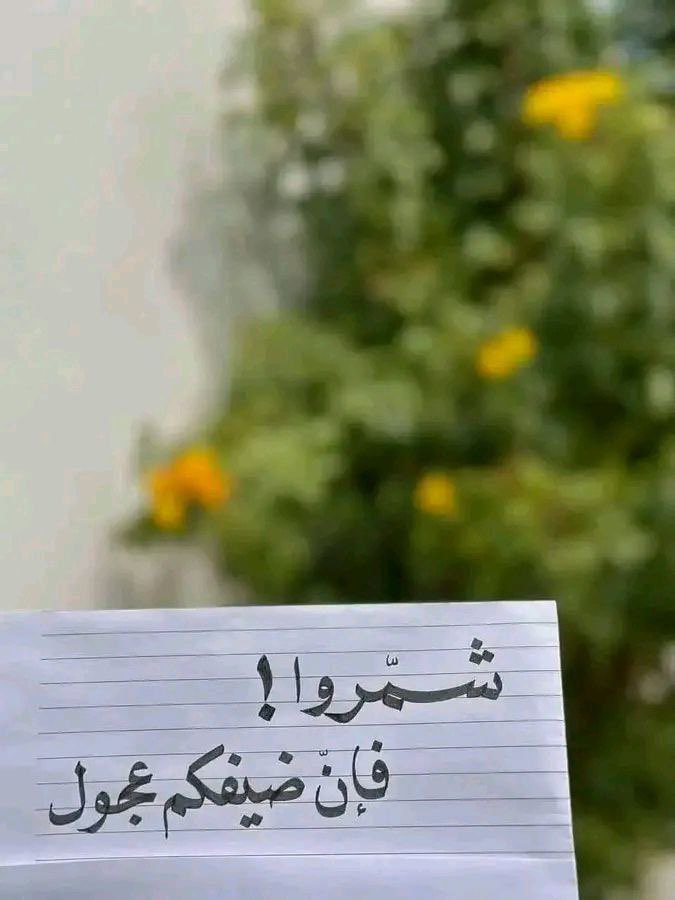 شمّروا !
فإنّ ضيفكم عجول